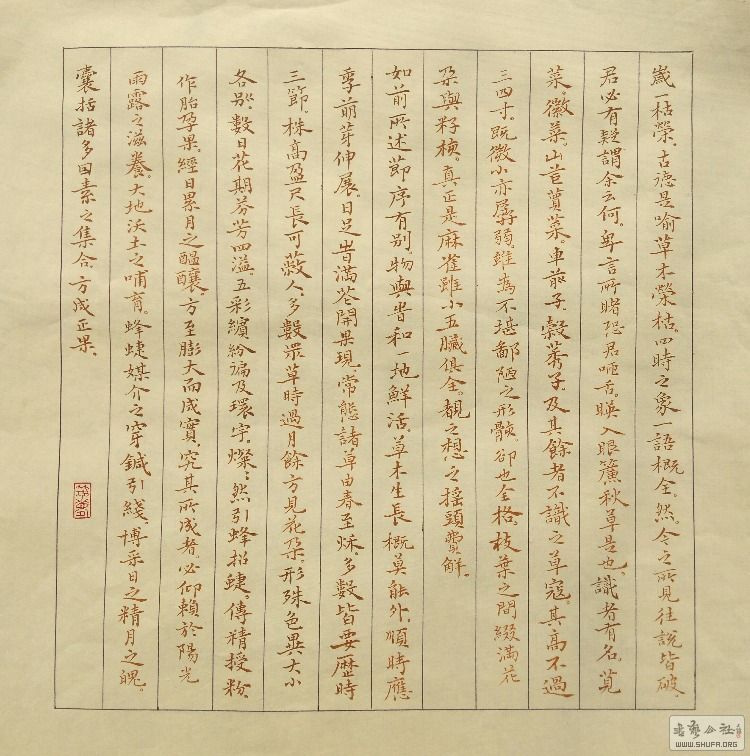 歲一枯榮、古德是喻草木榮枯、四時之象一語概全。然今之所見往說皆破、
君必有疑謂余云何。卑言所睹恐君咂舌。暎入眼簾秋草是也、識者有名。莧
菜薇菜。山苣蕒菜。車前子、穀莠子。及其餘者不識之草寇。其高不過
三四寸。既微小亦孱弱。雖爲不堪鄙陋之形骸。卻也全格。枝葉之間綴滿花
朶與籽椄。真正是麻雀雖小五臟俱全。覩之想之搖頭費解。
如前所述節序有别。物與皆和一地鮮活、草木生長概莫能外。順時應
季萌芽伸展。日足旹滿花開果現、常態諸草由春至秌。多數皆要歷時
三節。株高盈尺長可蔽人、多數眾草時過月餘方見花朶。形殊色異大小
各別、數日花期芬芳四溢、五彩繽紛徧及環宇。燦燦然引蜂招蜨。傳精授粉、
作胎孕果。經日累月之醞釀。方至膨大而成實、究其所成者。必仰賴於陽光
雨露之滋養。大地沃土之哺育。蜂蜨媒介之穿鍼引綫、博采日之精月之魄。
囊括諸多因素之集合、方成正果、
WWW.SHUFA.ORG